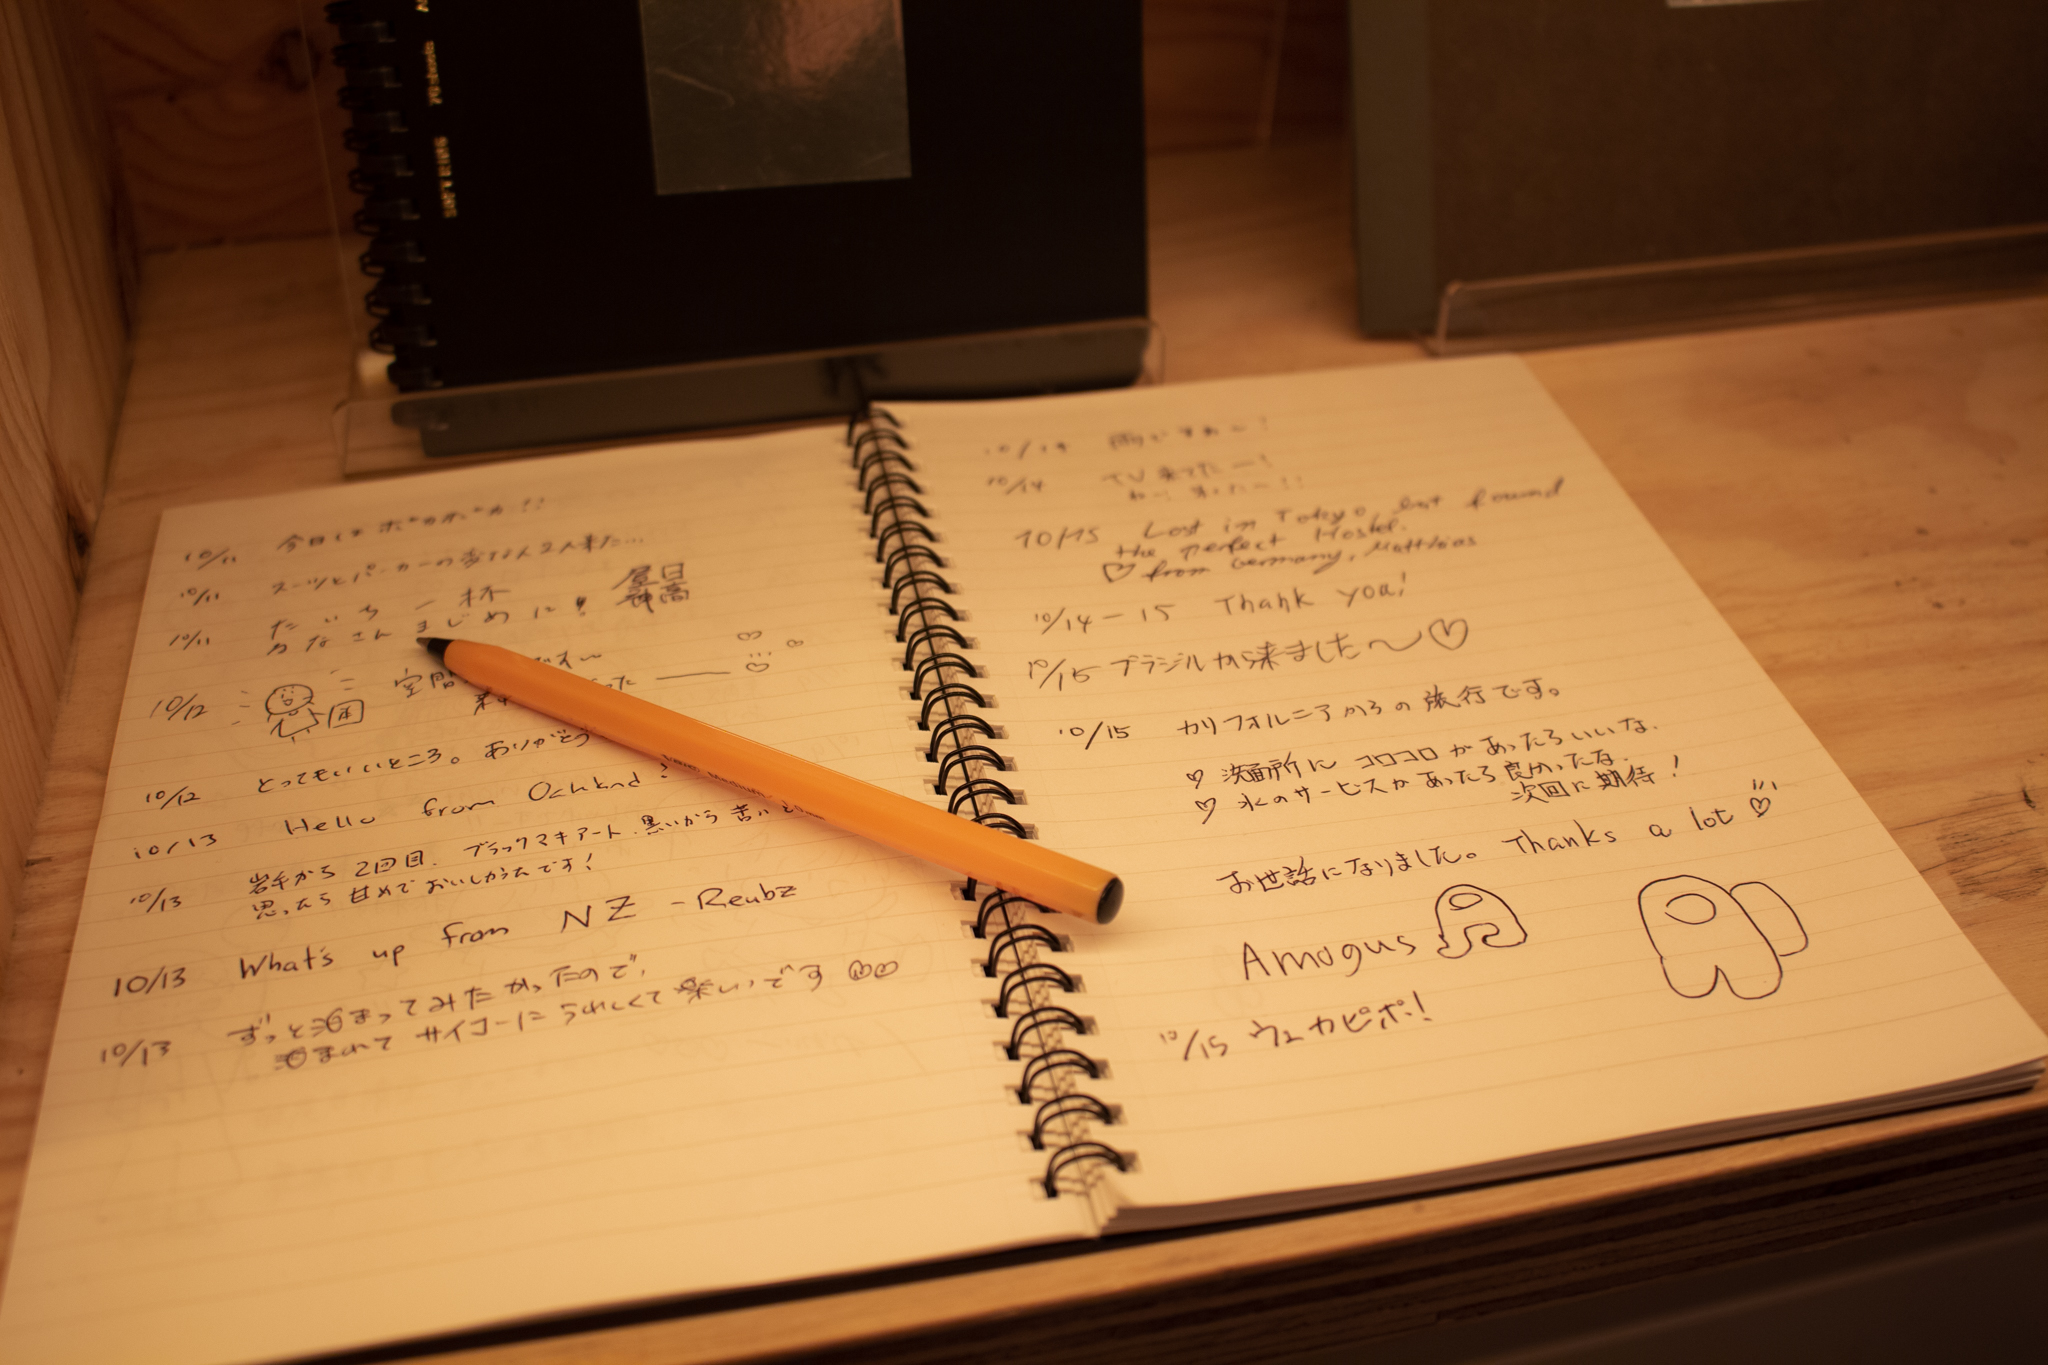 SOFT RING
10/11 今日はポカポカ!!
10/11 スーツとパーカーの変な人2人来た...
10/11
さん まじめに! 最高
10/12 空間
10/12 とってもいいところ。ありがとう
10/13 Hello from
10/13 岩手から2回目. ブラックマキアート、黒いから苦い
思ったら甘めでおいしかったです!
10/13 What's up from NZ - Reubz
10/13 ずっと泊まってみたかったので、
泊まれてサイコーにうれしくて楽しいです
10/14 雨ですね〜!
10/14 TV 来てたー!
10/15 Lost in Tokyo, but found
the perfect Hostel.
♡ from Germany, Matthias
10/14-15 Thank you!
10/15 ブラジルから来ました〜♡
10/15 カリフォルニアからの旅行です。
♡ 洗面所にコロコロがあったらいいな.
♡ 氷のサービスがあったら良かったな.
次回に期待!
お世話になりました。Thanks a lot ♡
Amogus
10/15 ウェカピポ!